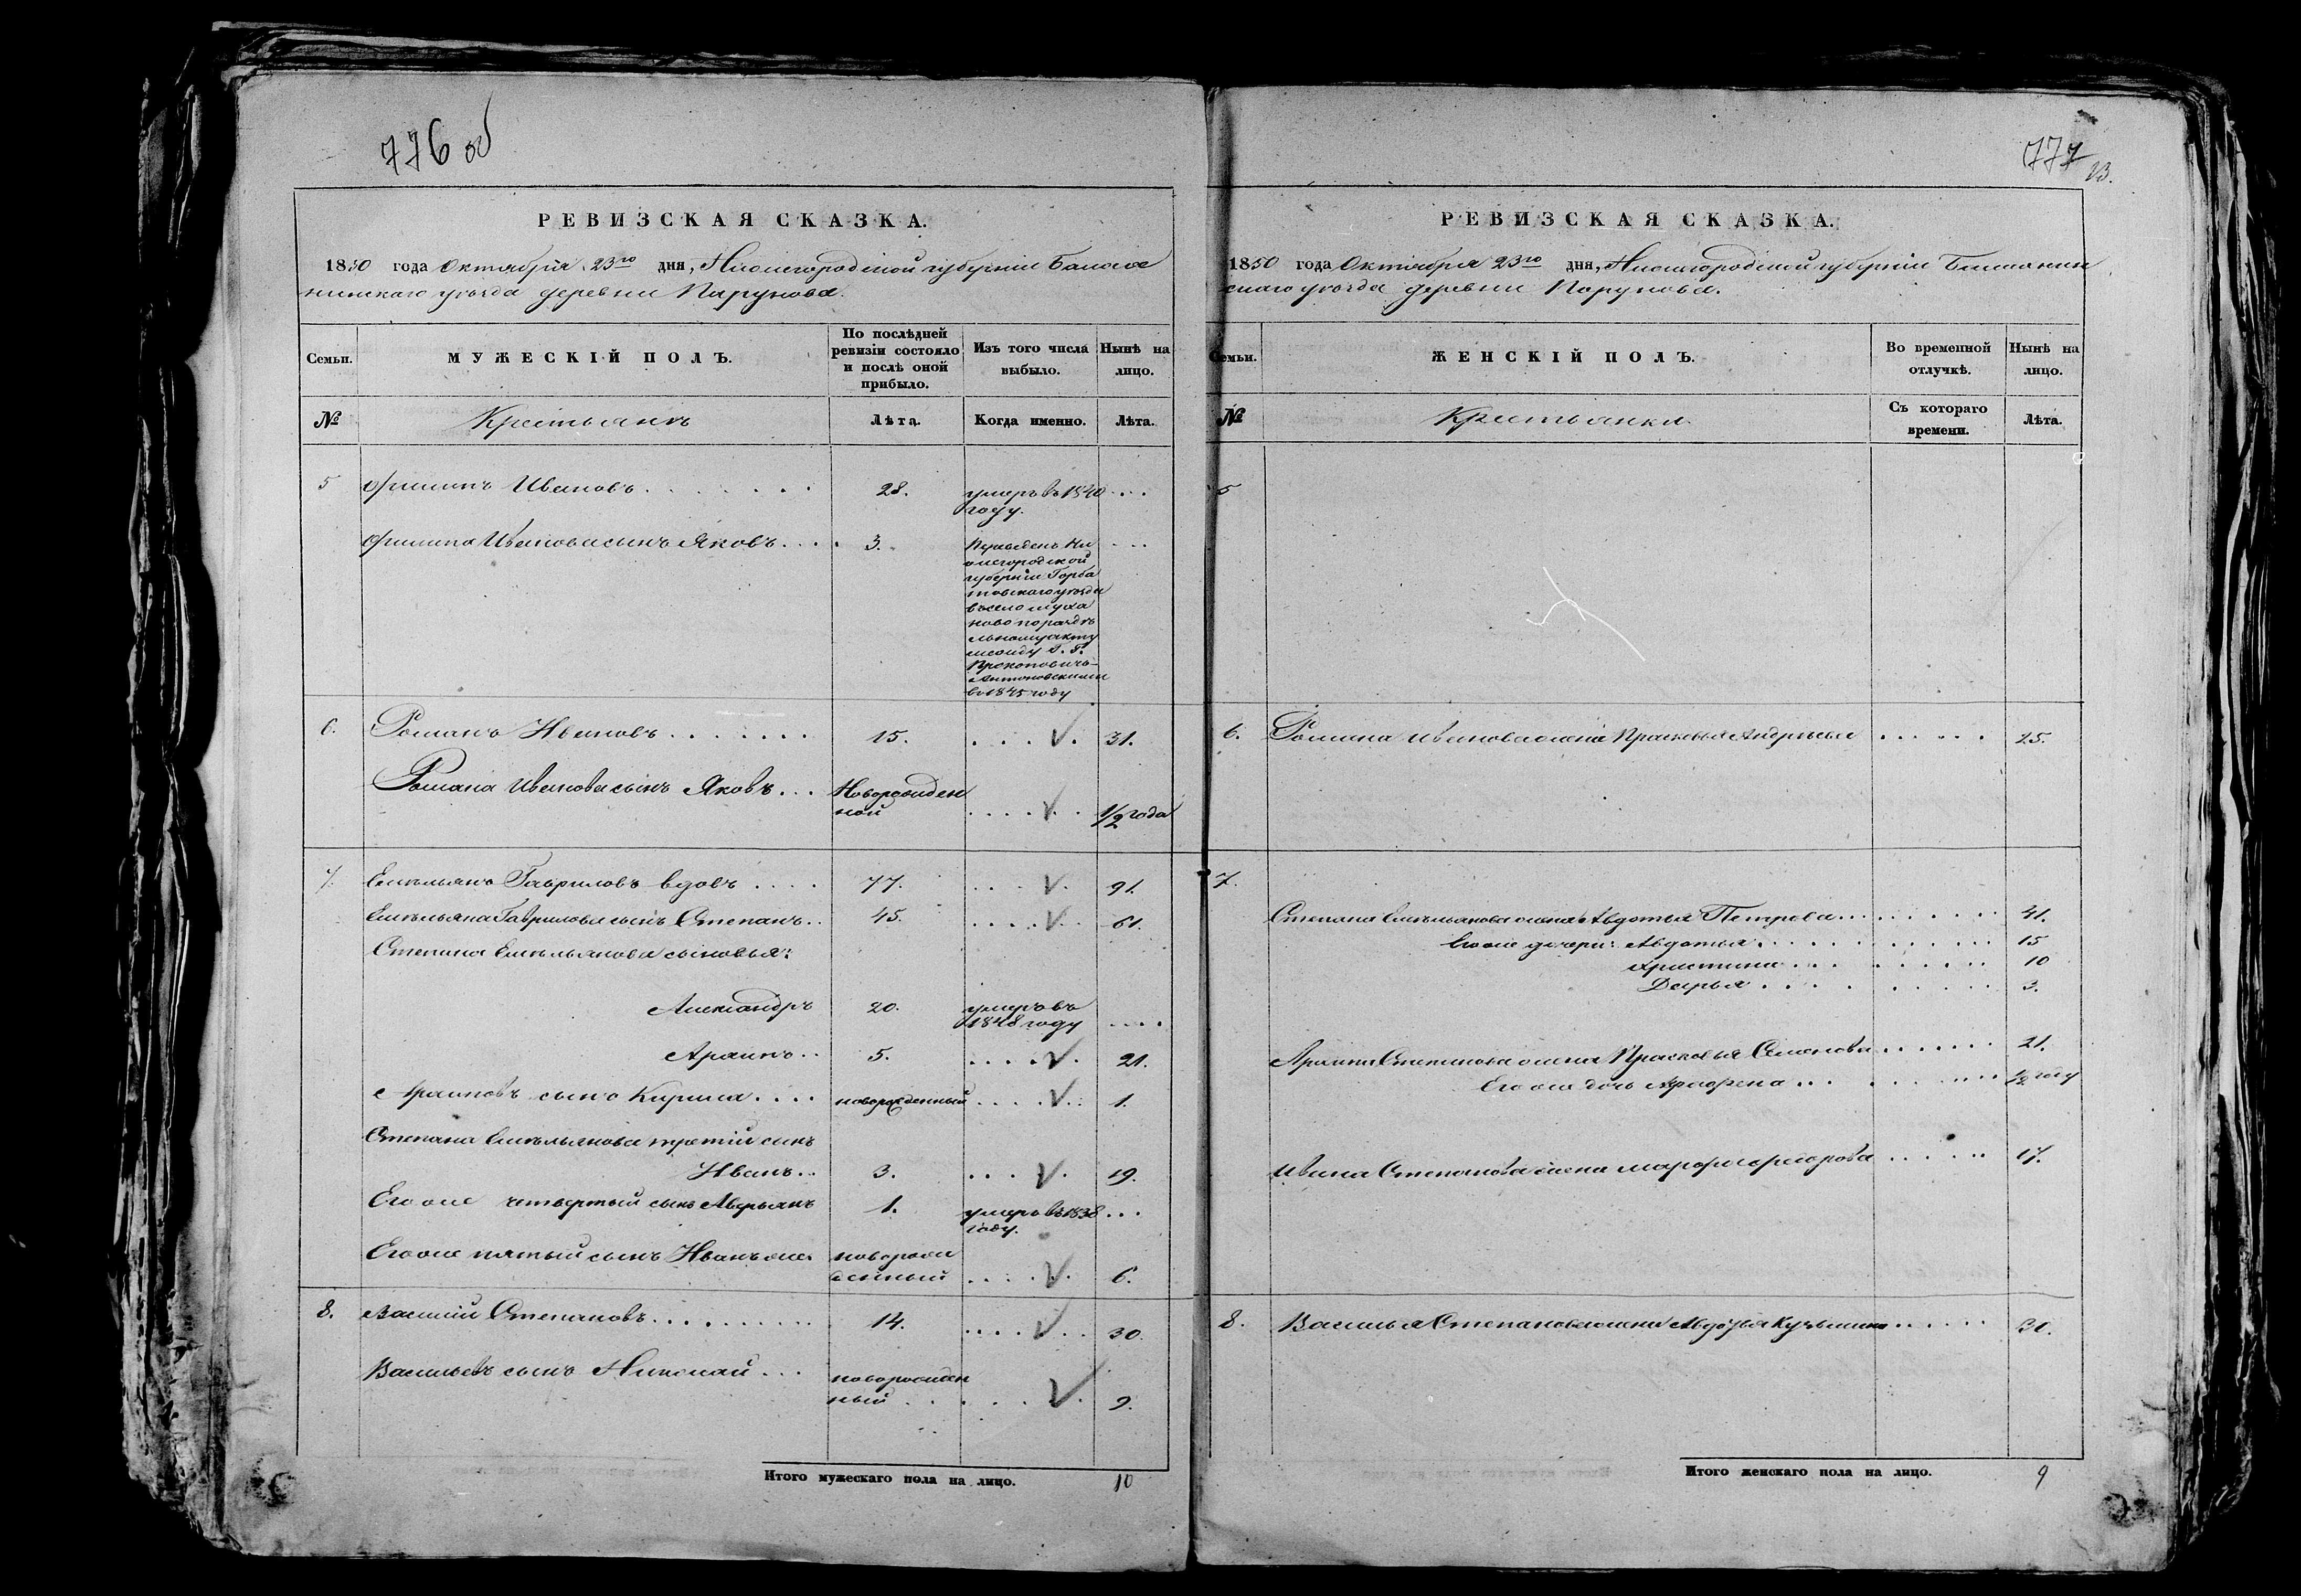 776 об
РЕВИЗСКАЯ СКАЗКА.
1850 года Октября 23го дня, Нижегородской губернiи Балах
нинскаго уѣзда деревни Парунова.
Семьи.
МУЖЕСКIЙ ПОЛЪ.
По послѣдней
ревизiи состояло
и послѣ оной
прибыло.
Изъ того числа
выбыло.
Нынѣ на
лицо.
№
Крестьянъ
Лѣта.
Когда именно.
Лѣта.
5 Филипъ Ивановъ . . . . . . . 28. умеръ въ 1840 . . .
году.
Филипа Иванова сынъ Яковъ . . . . 3. Переведенъ Ни . . .
жегородской
губернiи Горба
товскаго уѣзда
въ село
ново по раздѣ
льному акту
между Г. Г.
Прокоповичь-
Антоновскими
въ 1845 году
6. Романъ Ивановъ . . . . . . . 15. . . . V . 31.
Романа Иванова сынъ Яковъ . . . Новорожден
ной . . . . V . . 1/2 года
7. Емельянъ Гавриловъ вдовъ . . . . 77. . . . V . 91.
Емельяна Гаврилова сынъ Степанъ . . 45. . . . . V . . 61.
Степана Емельянова сыновья:
Александръ 20. умеръ въ
1848 году . . . .
Архипъ . . 5. . . . . V . 21.
Архиповъ сынъ Кирила . . . . новорожденный . . . . V . . 1.
Степана Емельянова третiй сынъ
Иванъ . . 3. . . . V . 19.
Его же четвертый сынъ Аверьянъ 1. умеръ въ 1838 . . .
году.
Его же пятый сынъ Иванъ же новорож
денный . . . . V . 6.
8. Василiй Степановъ . . . . . . . . . . 14. . . . . V . . 30.
Васильевъ сынъ Николай . . . новорожден
ный . . . . . V . 9.
Итого мужескаго пола на лицо. 10
777
РЕВИЗСКАЯ СКАЗКА.
1850 года Октября 23го дня, Нижегородской губернiи Балахнин
скаго уѣзда деревни Парунова.
Семьи.
ЖЕНСКIЙ ПОЛЪ.
Во временной
отлучкѣ.
Нынѣ на
лицо.
№
Крестьянки
Съ котораго
времени.
Лѣта.
5
6. Романа Иванова жена Прасковья Андреева . . . . . . 25.
7.
Степана Емельянова жена Авдотья Петрова . . . . . . . . . . 41.
Его же дочери: Авдотья . . . . . . . . . . . 15
Христина . . . . . . . . . 10
Дарья . . . . . . . . . . 3.
Архипа Степанова жена Прасковья Семенова . . . . . . . 21.
Его же дочь Аграфена . . . . . . . . . 1/2 году
Ивана Степанова жена Марфа Федорова . . . . . . 17.
8. Василья Степанова жена Кузьмина . . . . . . 31.
Итого женскаго пола на лицо. 9